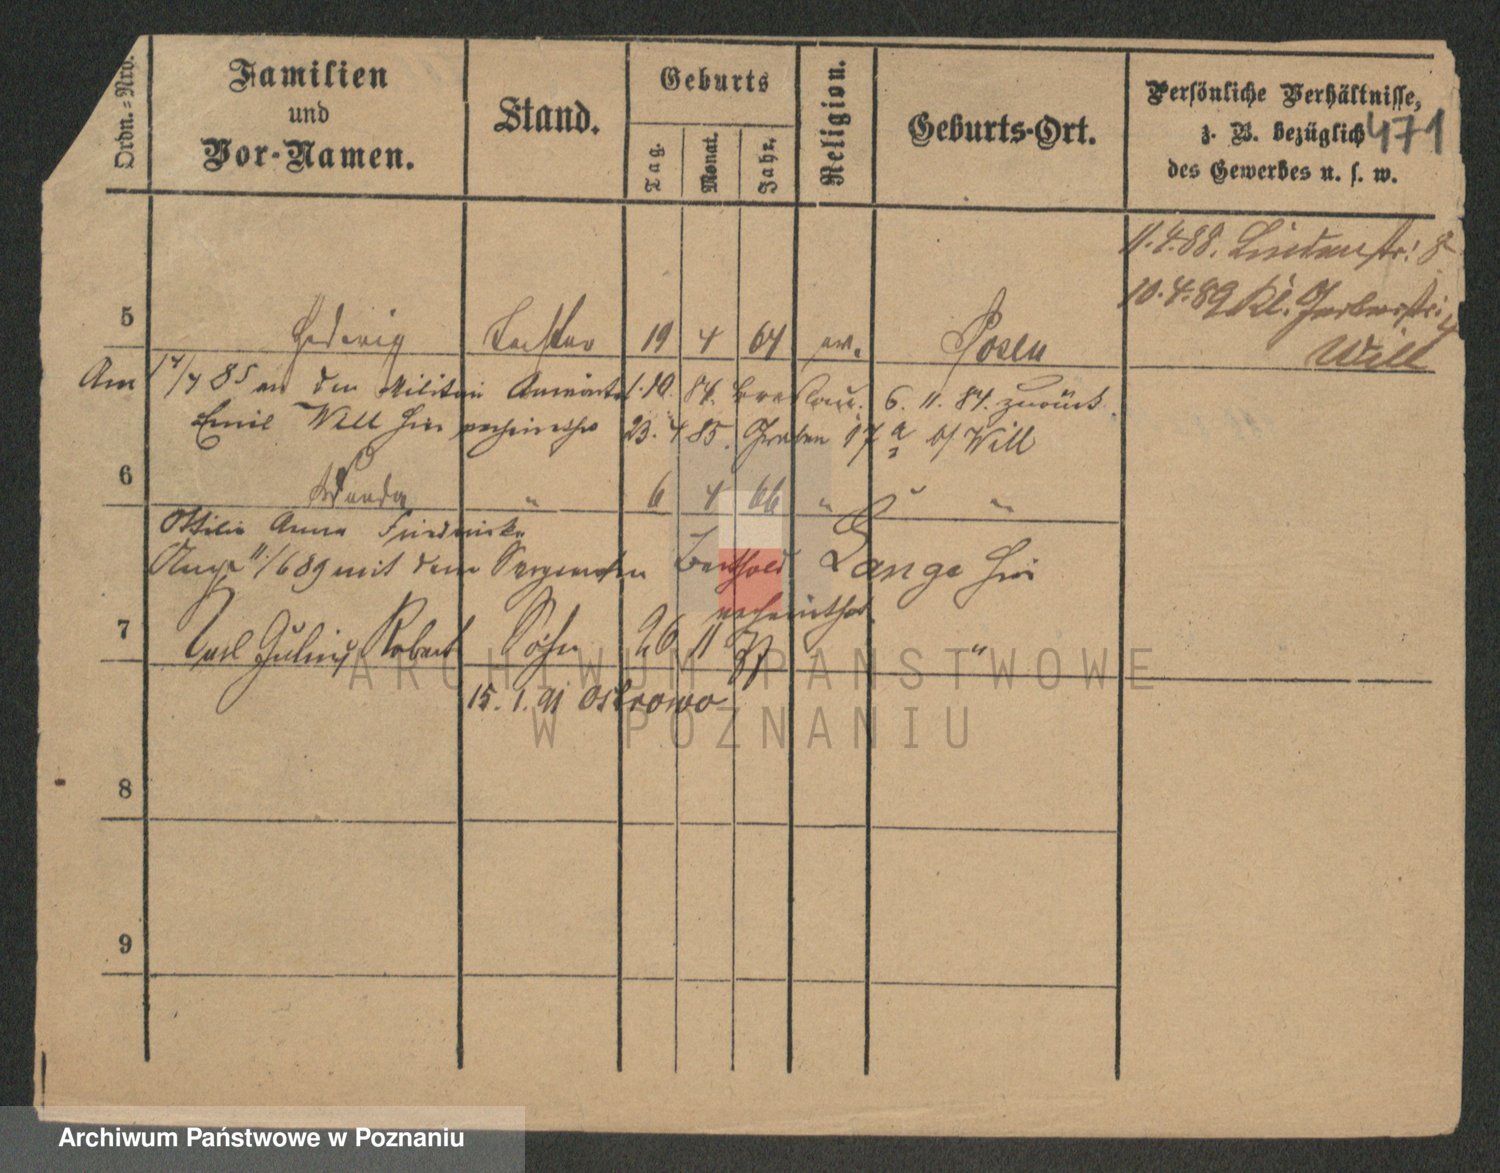 Ordn.=Nro.
Familien
und
Vor-Namen.
Stand.
Geburts
Tag.
Monat.
Jahr.
Religion.
Geburts-Ort.
Persönliche Verhältnisse,
z. B. bezüglich
des Gewerbes u. s. w.
471
11.4.88. Lindenstr. 8
10.4.89 Kl. Gerberstr. 4
Will
5 Hedwig Tochter 19 4 64 ev. Posen
Am 17/4 85 an den Militair Anwärter 1.10. 84. Breslau. 6. 11. 84. zurück.
Emil Will hier verheirathet 23. 4 85. Graben 17 a b/ Will
6 Wanda " 6 4 66 " "
Ottilie Anna Friederike
11/6 89 mit dem Sergeanten Berthold Lange hier
verheirathet.
7 Carl Julius Robert Sohn 26 11 "
15. 1. 91 Ostrowo
8
9
ARCHIWUM PAŃSTWOWE
W POZNANIU
Archiwum Państwowe w Poznaniu